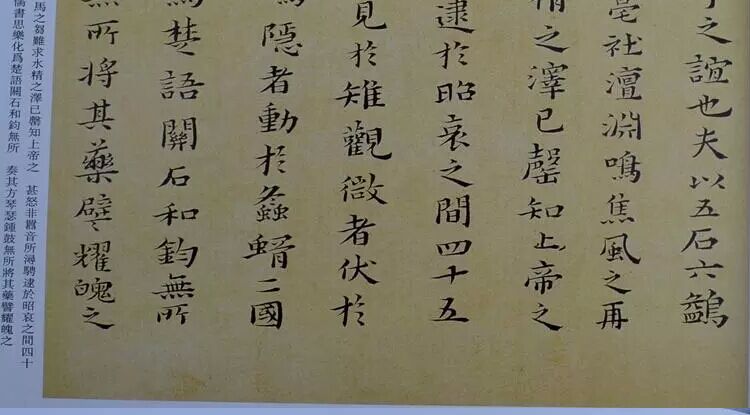 之誼也夫以五石六鷁
亳社澶淵鳴焦風之再
精之澤已罄知上帝之
逮於昭哀之間四十五
見於雉觀微者伏於
隱者動於螽蝑二國
爲楚語關石和鈞無所
無所將其藥譬耀魄之
馬之芻難求水精之澤已罄知上帝之 甚怒非囂音所潯騁逮於昭哀之間四十
儒書思樂化爲楚語關石和鈞無所 奏其方琴瑟鍾鼓無所將其藥譬耀魄之